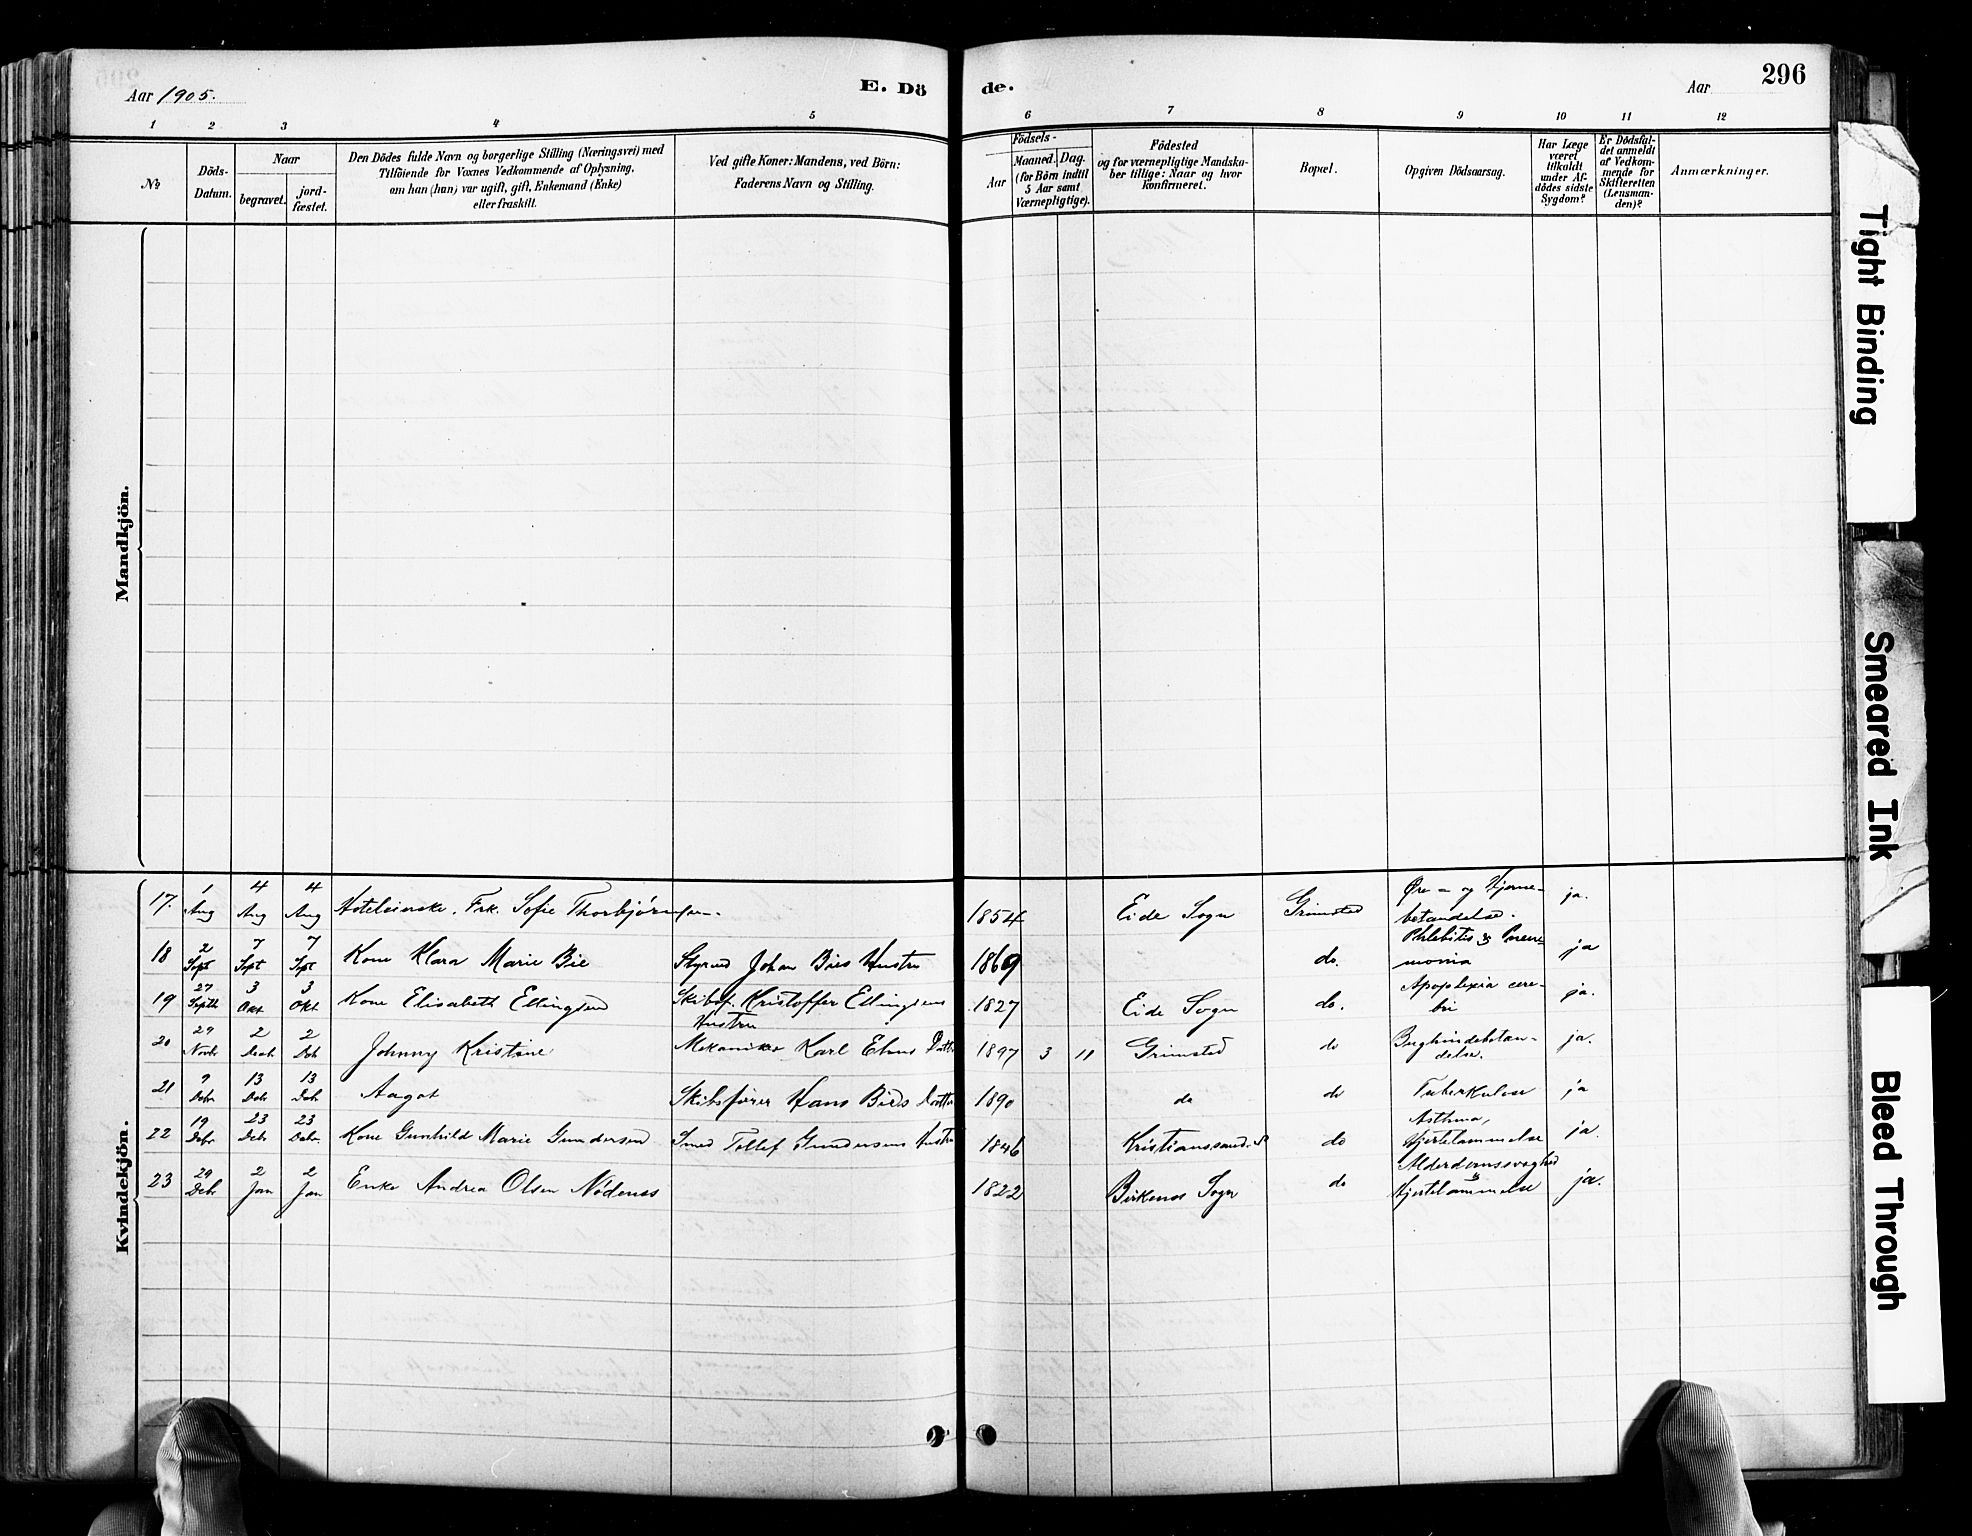 Aar 1905.
E. Dö
de.
Aar
296
1 2 3 4 5 6 7 8 9 10 11 12
No
Döds-
Datum.
Naar
begravet.
jord-
fæstet.
Den Dödes fulde Navn og borgerlige Stilling (Næringsvei) med
Tilföiende for Voxnes Vedkommende af Oplysning,
om han (hun) var ugift, gift, Enkemand (Enke)
eller fraskilt.
Ved gifte Koner: Mandens, ved Börn:
Faderens Navn og Stilling.
Födsels-
Aar
Maaned. Dag.
(for Börn indtil
5 Aar samt
Værnepligtige).
Födested
og for værnepligtige Mandska-
ber tillige: Naar og hvor
konfirmeret.
Bopæl.
Opgiven Dödsaarsag.
Har Læge
været
tilkaldt
under Af-
dödes sidste
Sygdom?
Er Dödsfal-
det anmeldt
af Vedkom-
mende for
Skifteretten
(Lensman-
den)?
Anmærkninger.
Mandkjön.
Kvindekjön.
17. 1 Aug 4 Aug 4 Aug Hoteleierske. Frk. Sofie Thorbjørnsen. 1854 Eide Sogn Grimstad Øre- og Hjerne-
betændelse. ja.
18 2 Sept 7 Sept 7 Sept Kone Klara Marie Bie Styrmd Johan Bies Hustru 1869 do. Phlebitis & Pneu-
monia ja
19 27 Septb 3 Okt 3 Okt Kone Elisabeth Ellingsen Skibsf. Kristoffer Ellingsens
Hustru 1827 Eide Sogn do. Apoplexia cere-
bri ja.
20 29 Novbr 2 Decb 2 Deb Johnny Kristine Mekaniker Karl Datter 1897 3 11 Grimstad do Bughindebetæn-
delse. ja.
21 9 Debr 13 Deb 13 Deb Aagot Skibsfører Hans Bies Datter 1890 do do Tuberkulose ja
22 19 Debr 23 Debr 23 Debr Kone Gunhild Marie Gundersen Smed Tellef Gundersens Hustru 1846 Kristianssand S do Asthma,
Hjertelammelse ja.
23 29 Debr 2 Jan 2 Jan Enke Andrea Olsen Nødenes 1822 Birkenes Sogn do Alderdomssvaghed
& Hjertelammelse ja.
Tight Binding
Smeared Ink
Bleed Through